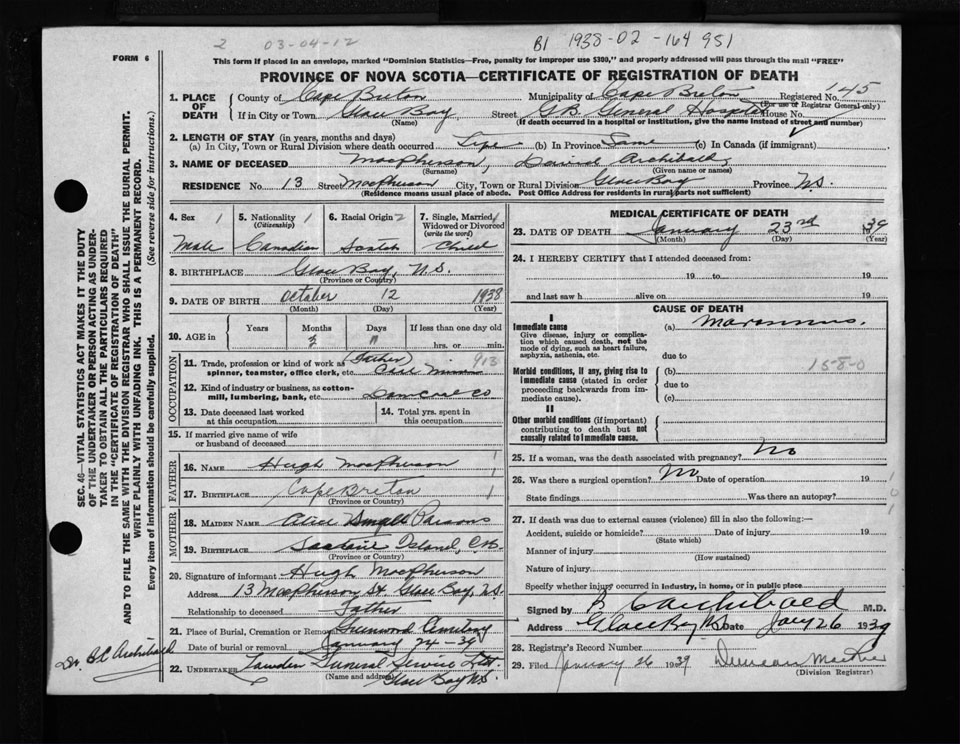 2 03-04-12
B1 1938-02-164 951
FORM 6
This form if placed in an envelope, marked "Dominion Statistics—Free, penalty for improper use $300," and properly addressed will pass through the mail "FREE"
PROVINCE OF NOVA SCOTIA—CERTIFICATE OF REGISTRATION OF DEATH
1. PLACE OF DEATH County of Cape Breton Municipality of Cape Breton Registered No. 145
(For use of Registrar General only)
If in City or Town Glace Bay Street General Hospital House No.
(Name) (If death occurred in a hospital or institution, give the name instead of street and number)
2. LENGTH OF STAY (in years, months and days)
(a) In City, Town or Rural Division where death occurred Life (b) In Province Same (c) In Canada (if immigrant)
3. NAME OF DECEASED Macpherson, David Archibald
(Surname) (Given name or names)
RESIDENCE No. 13 Street Macpherson City, Town or Rural Division Glace Bay Province N.S.
(Residence means usual place of abode. Post Office Address for residents in rural parts not sufficient)
4. Sex 1 5. Nationality 1 (Citizenship) 6. Racial Origin 2 7. Single, Married, Widowed or Divorced (write the word)
Male Canadian Scotch Child
8. BIRTHPLACE Glace Bay, N.S.
(Province or Country)
9. DATE OF BIRTH October 12 1938
(Month) (Day) (Year)
10. AGE in Years Months Days If less than one day old
3 11 hrs. or min.
OCCUPATION
11. Trade, profession or kind of work as spinner, teamster, office clerk, etc. (Father) 913
12. Kind of industry or business, as cotton-mill, lumbering, bank, etc. Dom Coal Co
13. Date deceased last worked at this occupation 14. Total yrs. spent in this occupation
15. If married give name of wife or husband of deceased
FATHER
16. NAME Hugh Macpherson
17. BIRTHPLACE Cape Breton
(Province or Country)
MOTHER
18. MAIDEN NAME Alice Parsons
19. BIRTHPLACE Island, C.B.
(Province or Country)
20. Signature of informant Hugh Macpherson
Address 13 Macpherson St. Glace Bay, N.S.
Relationship to deceased Father
21. Place of Burial, Cremation or Removal Greenwood Cemetery
Date of burial or removal January 24-39
22. UNDERTAKER Funeral Service Ltd.
(Name and address) Glace Bay N.S.
MEDICAL CERTIFICATE OF DEATH
23. DATE OF DEATH January 23rd 39
(Month) (Day) (Year)
24. I HEREBY CERTIFY that I attended deceased from:
19 to 19
and last saw h alive on 19
CAUSE OF DEATH
I
Immediate cause (a) Marasmus.
Give disease, injury or complication which caused death, not the mode of dying, such as heart failure, asphyxia, asthenia, etc.
due to
Morbid conditions, if any, giving rise to immediate cause (stated in order proceeding backwards from immediate cause). (b) 158-0
due to
(c)
II
Other morbid conditions (if important) contributing to death but not causally related to immediate cause.
25. If a woman, was the death associated with pregnancy? No
26. Was there a surgical operation? No Date of operation 19
State findings Was there an autopsy?
27. If death was due to external causes (violence) fill in also the following:—
Accident, suicide or homicide? Date of injury 19
(State which)
Manner of injury
(How sustained)
Nature of injury
Specify whether injury occurred in industry, in home, or in public place
Signed by B C Archibald M.D.
Address Glace Bay NS Date Jany 26 1939
28. Registrar's Record Number
29. Filed January 26 1939 Duncan
(Division Registrar)
SEC. 46—VITAL STATISTICS ACT MAKES IT THE DUTY
OF THE UNDERTAKER OR PERSON ACTING AS UNDER-
TAKER TO OBTAIN ALL THE PARTICULARS REQUIRED
IN THE "CERTIFICATE OF REGISTRATION OF DEATH"
AND TO FILE THE SAME WITH THE DIVISION REGISTRAR WHO SHALL ISSUE THE BURIAL PERMIT.
WRITE PLAINLY WITH UNFADING INK. THIS IS A PERMANENT RECORD.
Every item of information should be carefully supplied. (See reverse side for instructions.)
Dr. B C Archibald